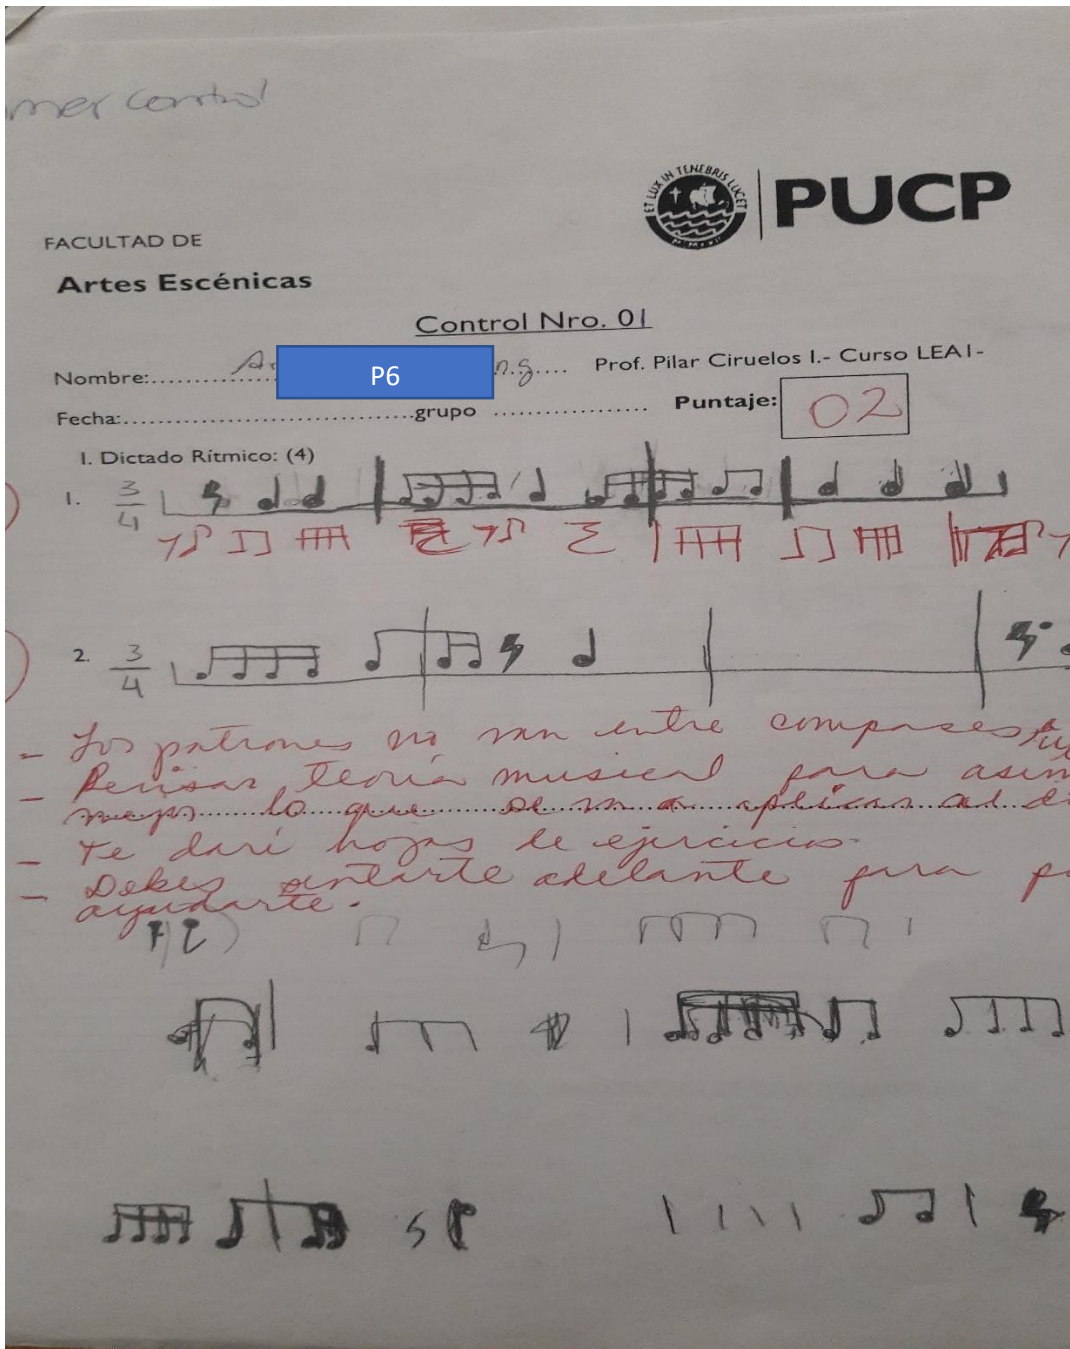 mer control
ET LUX IN TENEBRIS LUCET
PUCP
FACULTAD DE
Artes Escénicas
Control Nro. 01
Nombre: P6 Prof. Pilar Ciruelos I.- Curso LEA1-
Fecha:..............................grupo .................. Puntaje: 02
I. Dictado Rítmico: (4)
1. 3/4
2. 3/4
- Los patrones no van entre compases
- Revisar teoría musical para asim
lo que se va a aplicar al di
- Te daré hojas de ejercicios.
- Debes sentarte adelante para p
ayudarte.